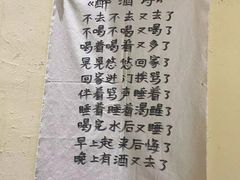 《醉酒诗》
不去不去又去了
不喝不喝又喝了
喝着喝着又多了
晃晃悠悠回家了
回家进门挨骂了
伴着骂声睡着了
喝着睡着渴醒了
喝完水后又睡了
早上起来后悔了
晚上有酒又去了